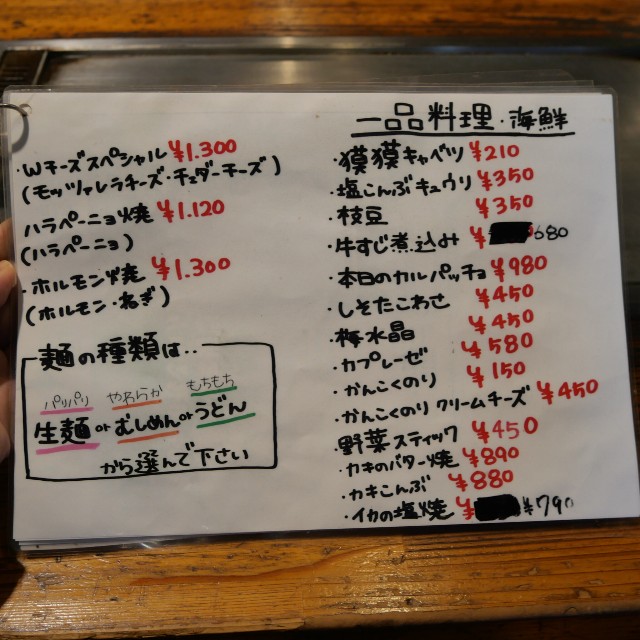 ・Wチーズスペシャル ¥1.300
(モッツァレラチーズ・チェダーチーズ)
ハラペーニョ焼 ¥1.120
(ハラペーニョ)
・ホルモン焼 ¥1.300
(ホルモン・ねぎ)
麺の種類は..
パリパリ やわらか もちもち
生麺 or むしめん or うどん
から選んで下さい
一品料理・海鮮
・獏獏キャベツ ¥210
・塩こんぶキュウリ ¥350
・枝豆 ¥350
・牛すじ煮込み ¥680
・本日のカルパッチョ ¥980
・しそたこわさ ¥450
・梅水晶 ¥450
・カプレーゼ ¥580
・かんこくのり ¥150
・かんこくのり クリームチーズ ¥450
・野菜スティック ¥450
・カキのバター焼 ¥890
・カキこんぶ ¥880
・イカの塩焼 ¥ ¥790